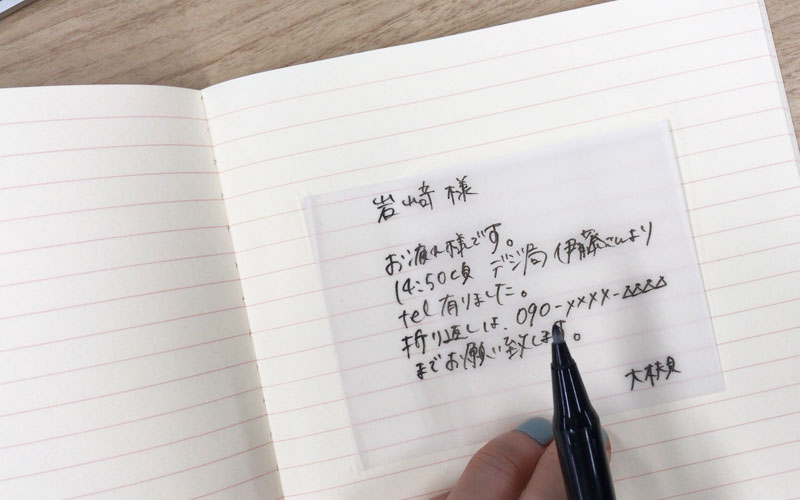 岩崎様
お疲れ様です。
14:50頃 デジ局 伊藤さんより
tel有りました。
折り返しは、090-xxxx-△△△△
までお願い致します。